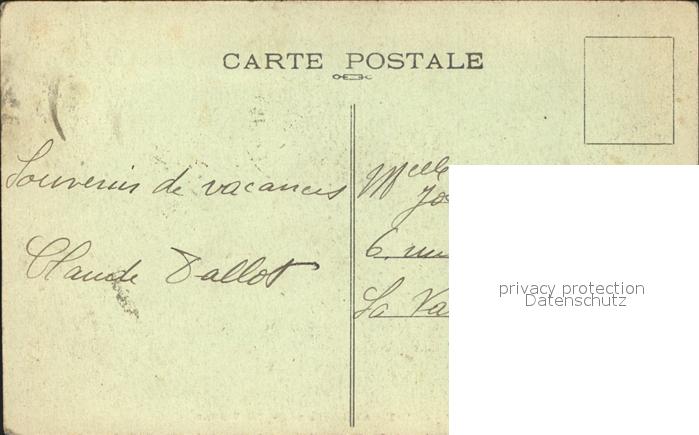 CARTE POSTALE
Souvenirs de vacances
Claude Tallot
Melle
6, rue
La Va
privacy protection
Datenschutz